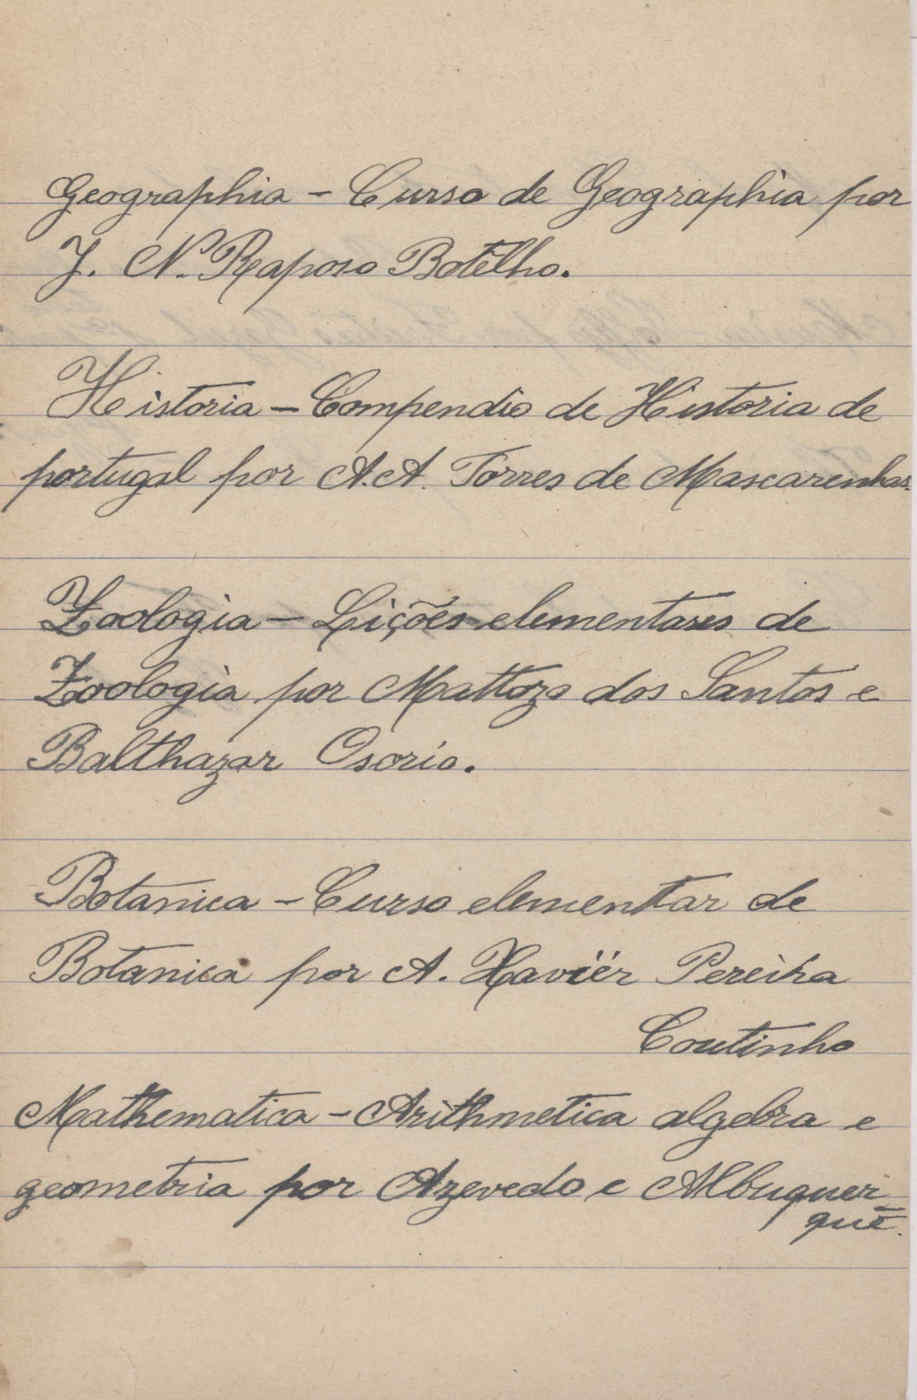 Geographia - Curso de Geographia por
J. N. Raposo Botelho.
Historia - Compendio de Historia de
portugal por A. A. Torres de Mascarenhas.
Zoologia - Lições elementares de
Zoologia por Mattozo dos Santos e
Balthazar Osorio.
Botanica - Curso elementar de
Botanica por A. Xaviér Pereira
Coutinho
Mathematica - Arithmetica algebra e
geometria por Azevedo e Albuquer
que.